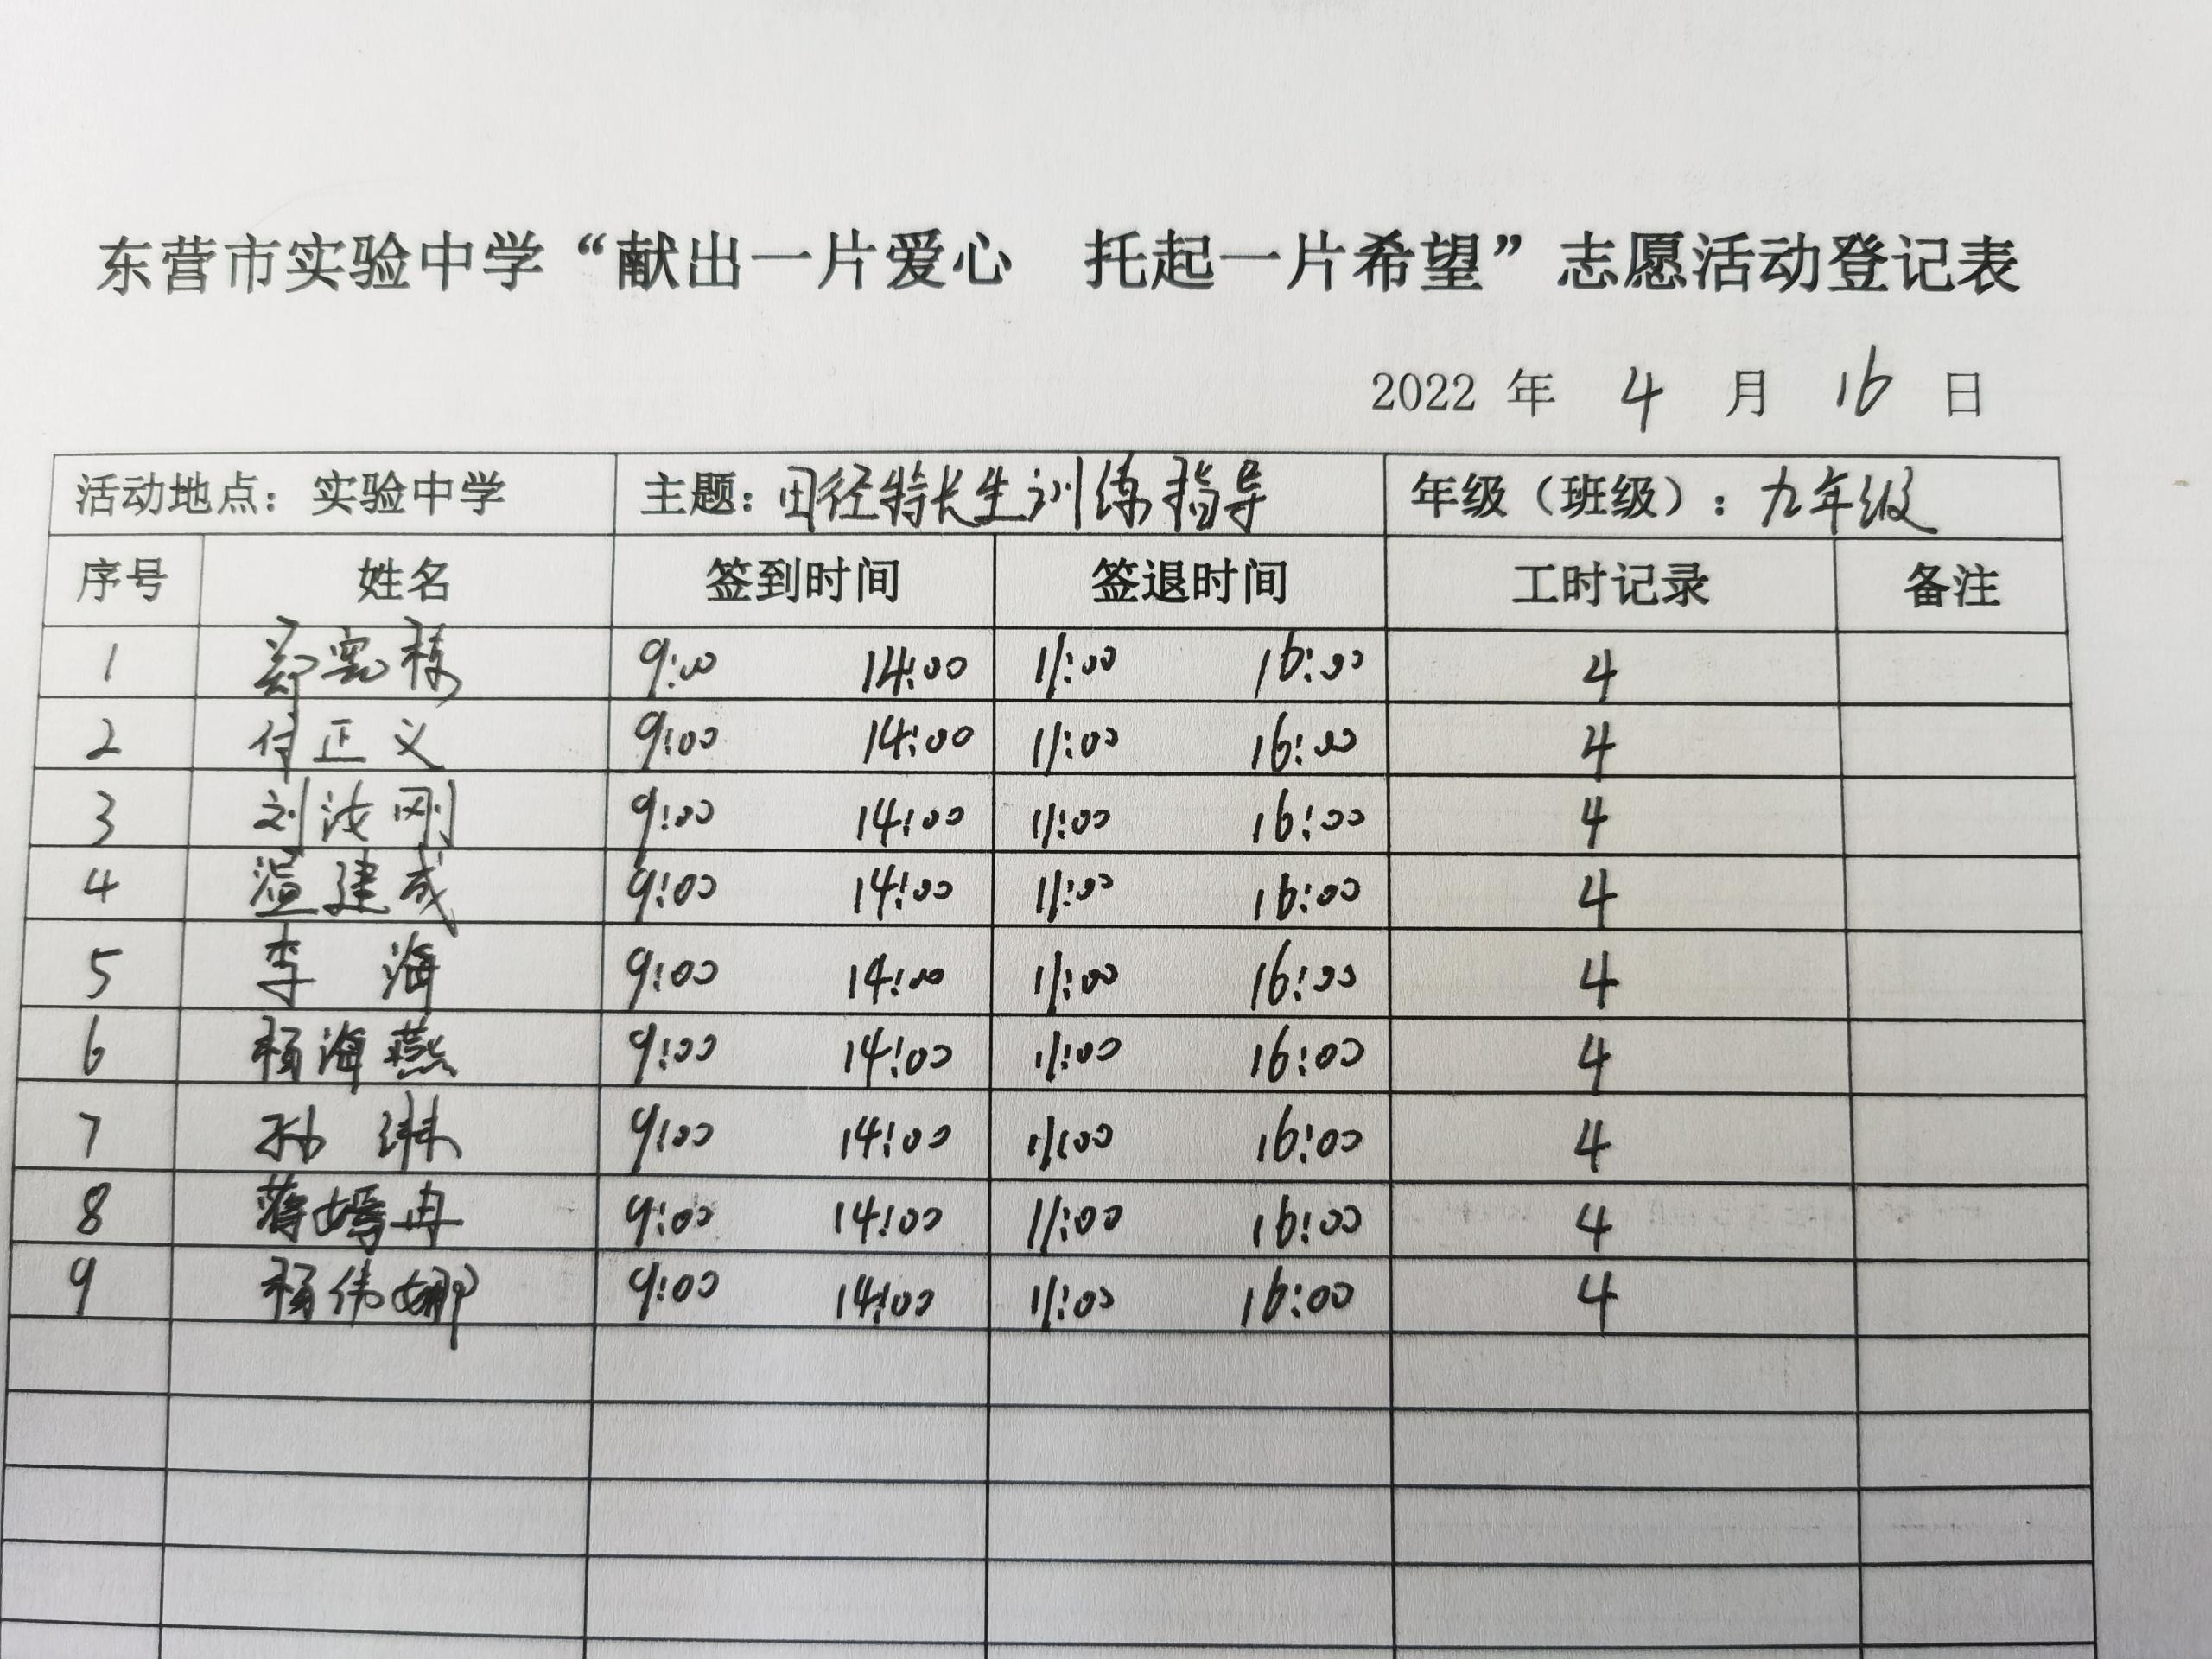 东营市实验中学“献出一片爱心 托起一片希望”志愿活动登记表
2022 年 4 月 16 日
活动地点：实验中学 主题：田径特长生训练指导 年级（班级）：九年级
序号 姓名 签到时间 签退时间 工时记录 备注
1 9:00 14:00 11:00 16:00 4
2 付正义 9:00 14:00 11:00 16:00 4
3 刘汝刚 9:00 14:00 11:00 16:00 4
4 温建成 9:00 14:00 11:00 16:00 4
5 李海 9:00 14:00 11:00 16:00 4
6 杨海燕 9:00 14:00 11:00 16:00 4
7 孙琳 9:00 14:00 11:00 16:00 4
8 9:00 14:00 11:00 16:00 4
9 杨伟娜 9:00 14:00 11:00 16:00 4